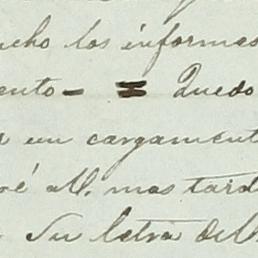 cho los informes
ento - = Quedo
un cargament
é all. mas tard
Su letra de